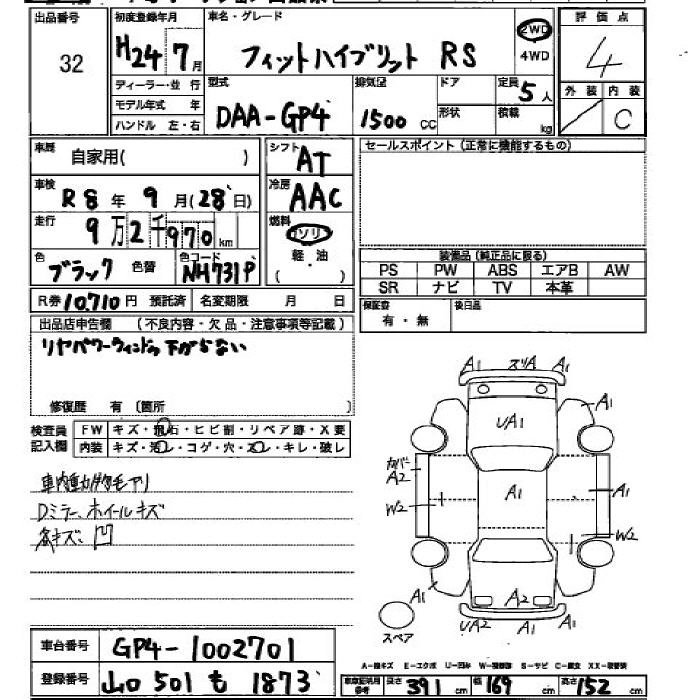 出品番号
32
初度登録年月
H24 7月
車名・グレード
フィットハイブリット RS
2WD
4WD
評価点
4
ディーラー・並行
モデル年式 年
ハンドル 左・右
型式
DAA-GP4
排気量
1500 CC
ドア
形状
定員
5人
積載
kg
外装 内装
C
車歴
自家用( )
車検
R8年 9月(28日)
走行
9万2千970km
色
ブラック 色替
色コード
NH731P
R券10,710円 預託済
名変期限 月 日
シフト
AT
冷房
AAC
燃料
ガソリン
軽・油
( )
セールスポイント(正常に機能するもの)
装備品(純正品に限る)
PS PW ABS エアB AW
SR ナビ TV 本革
保証書
有・無
後日品
出品店申告欄 (不良内容・欠品・注意事項等記載)
リヤパワーウィンドウ下がらない
修復歴 有 〔箇所 〕
検査員
記入欄
FW キズ・飛石・ヒビ割・リペア跡・X要
内装 キズ・汚レ・コゲ・穴・スレ・キレ・破レ
車内動物毛アリ
Dミラー、ホイールキズ
各キズ、凹
A1 スリA A1
UA1
A1
カバー
A2
W2
A1
A1
W2
A1
A2
UA2 A1 A1
スペア
車台番号
GP4-1002701
登録番号
山口 501 も 1873
長さ 391 cm 幅 169 cm 高さ 152 cm